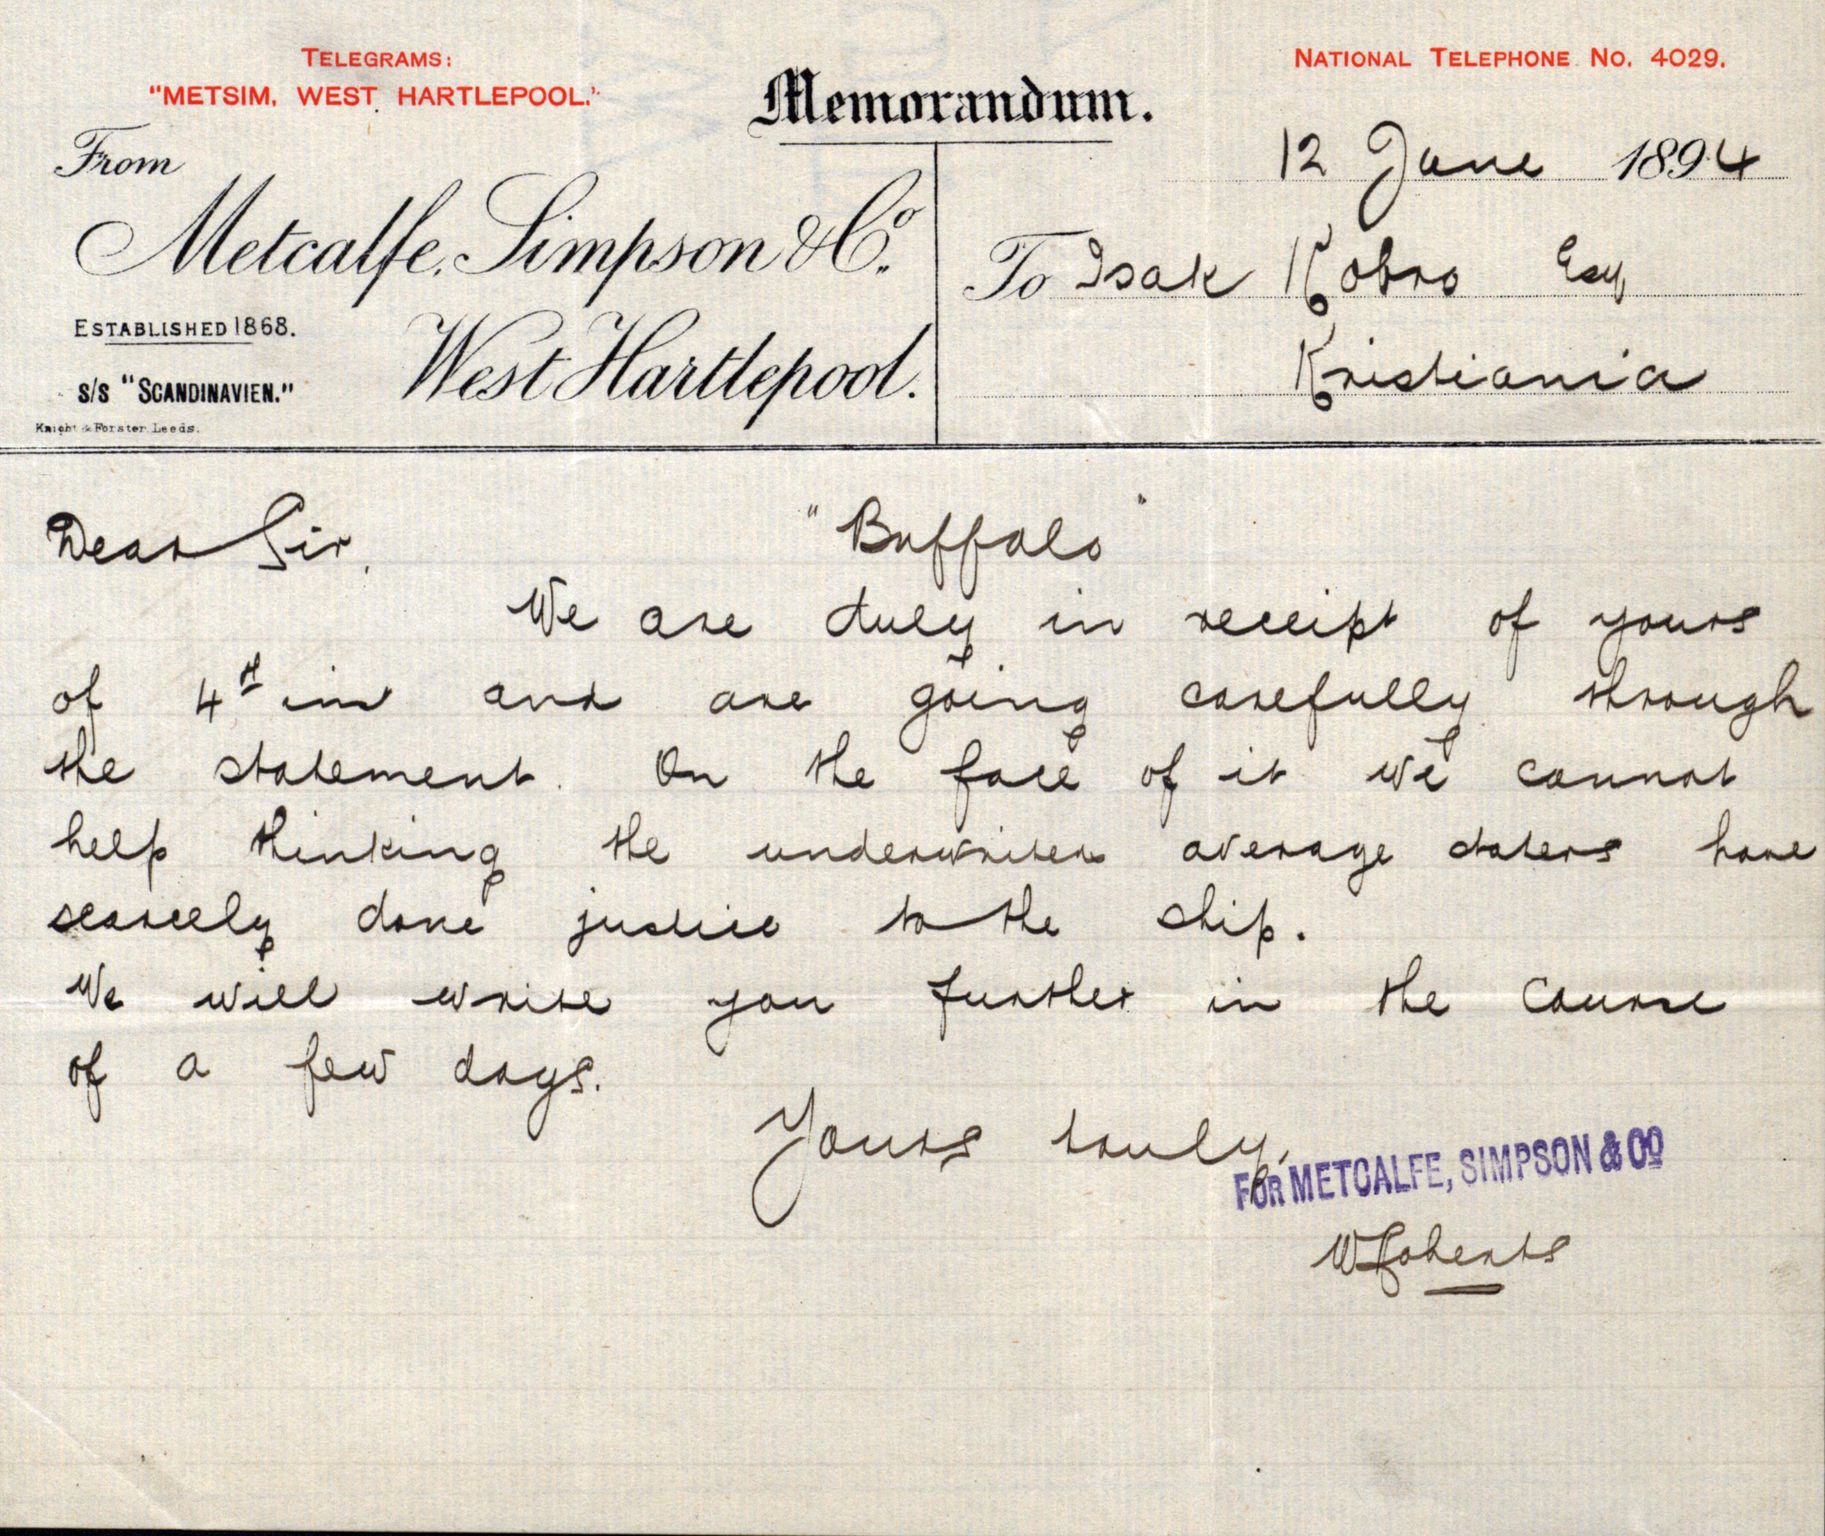 TELEGRAMS:
"METSIM, WEST HARTLEPOOL."
NATIONAL TELEPHONE No. 4029.
Memorandum.
From
Metcalfe, Simpson & Co.
ESTABLISHED 1868.
West Hartlepool.
S/S "SCANDINAVIEN."
Knight & Forster, Leeds.
12 June 1894
To Isak Kobro Esq
Kristiania
Dear Sir, "Buffalo"
We are duly in receipt of yours
of 4th ins and are going carefully through
the statement. On the face of it we cannot
help thinking the underwriters average staters have
scarcely done justice to the ship.
We will write you further in the course
of a few days.
Yours truly,
FOR METCALFE, SIMPSON & CO
WRoberts